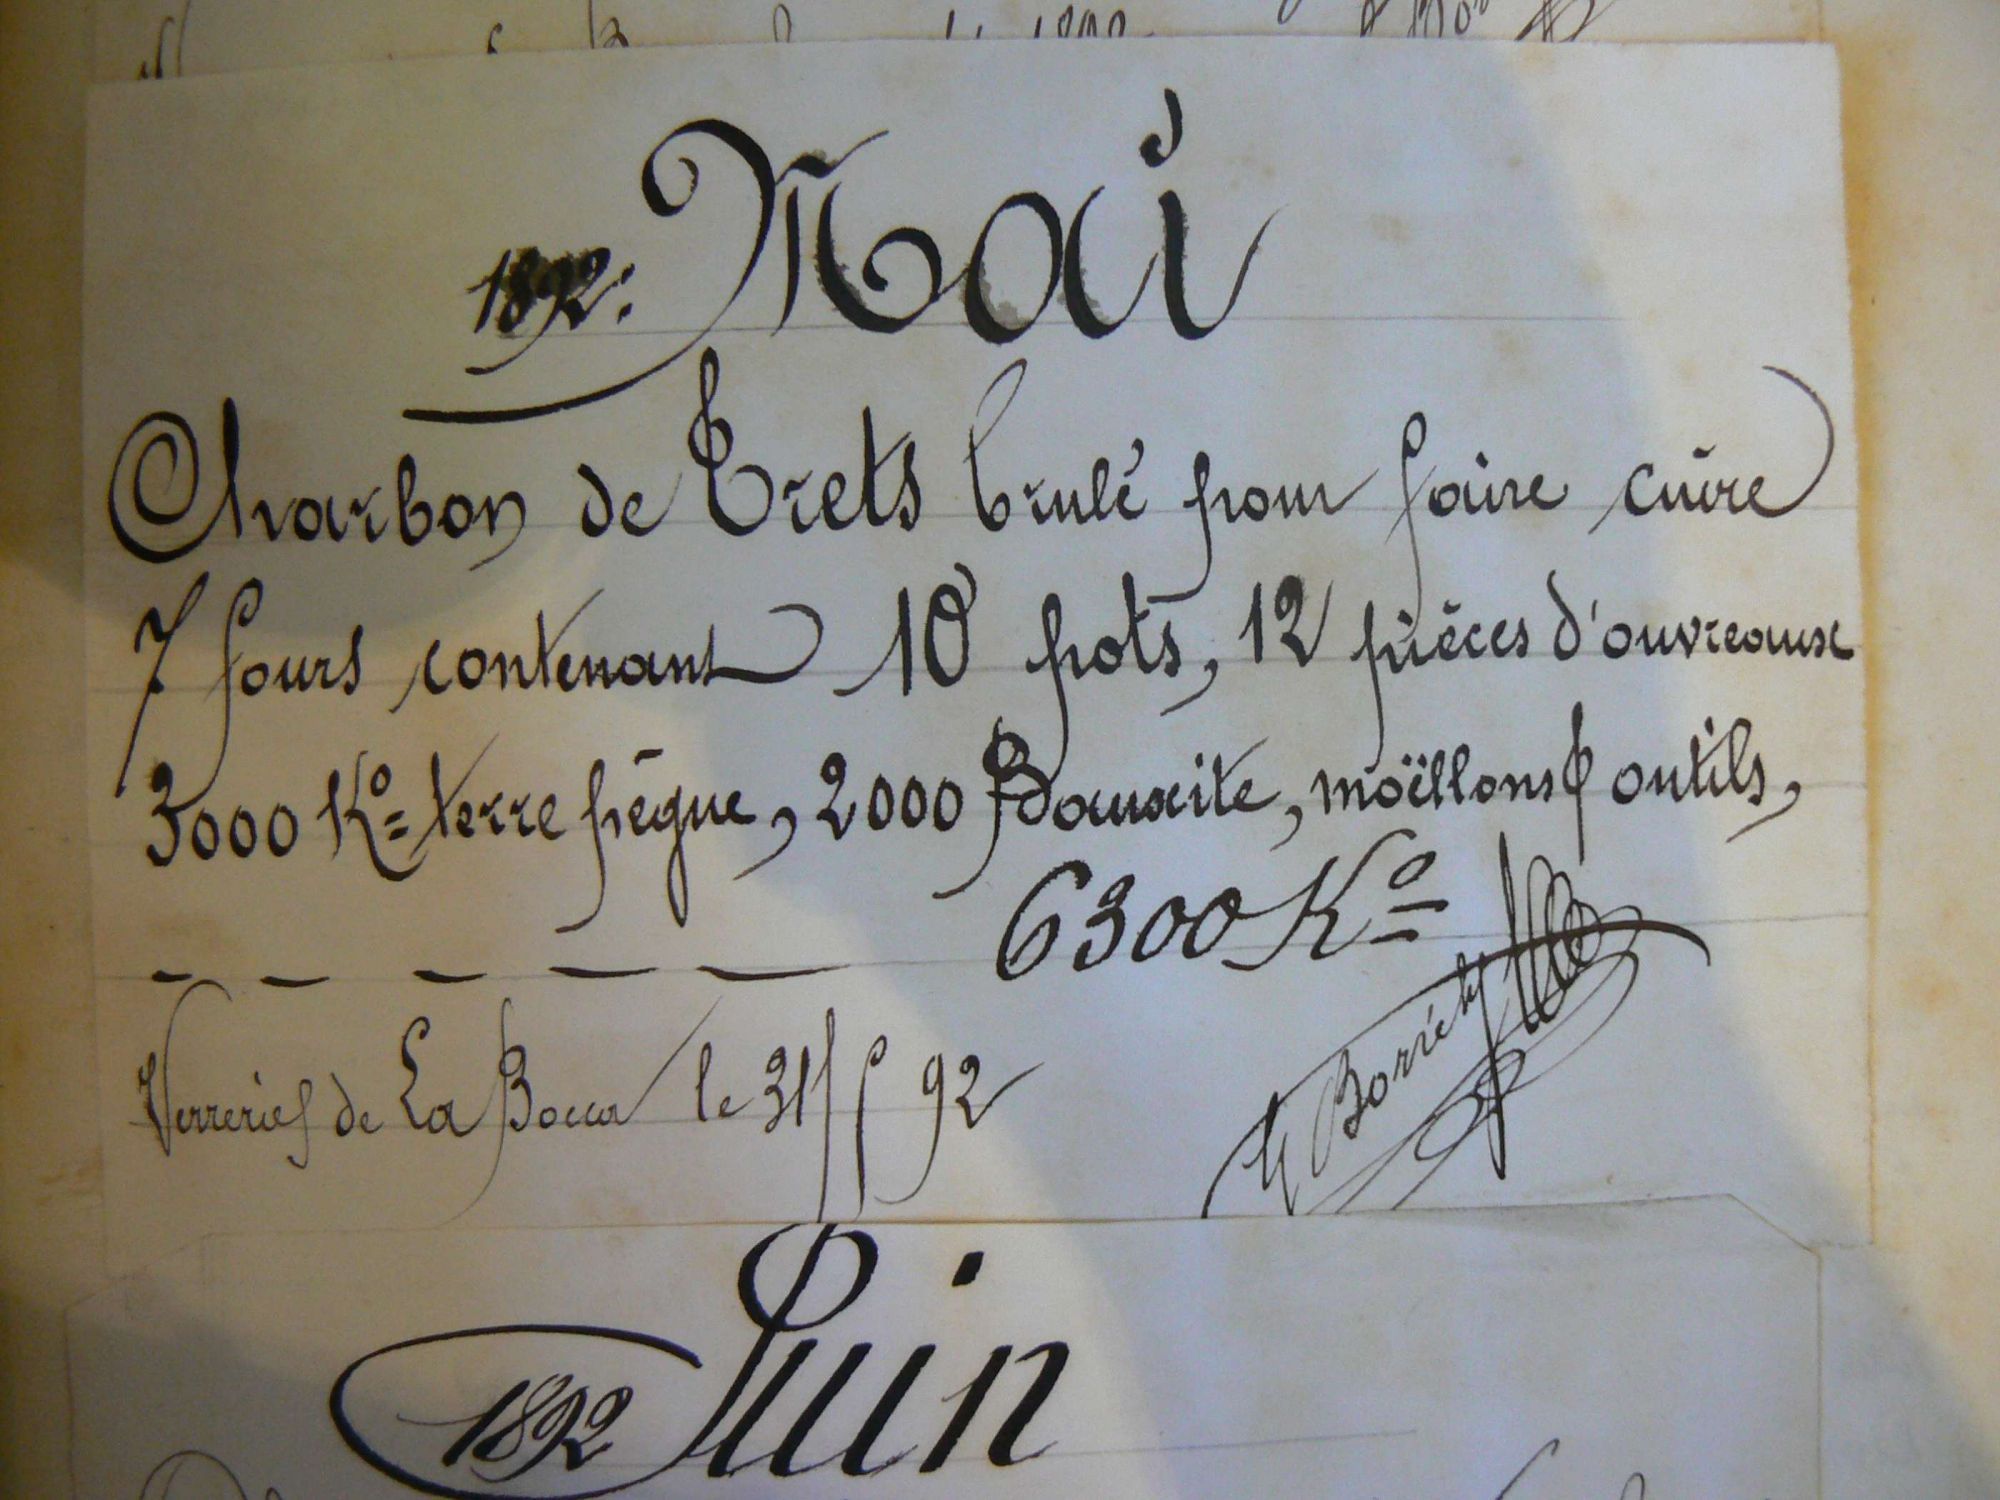 1892
1892: Mai
Charbon de Trets brulé pour faire cuire
7 fours contenant 10 pots, 12 pièces d'ouvreaux
3000 Ko= terre pègue, 2000 Bauxite, moëllons & outils,
6300 Ko=
Verreries de La Bocca le 31/5 92
1892 Juin